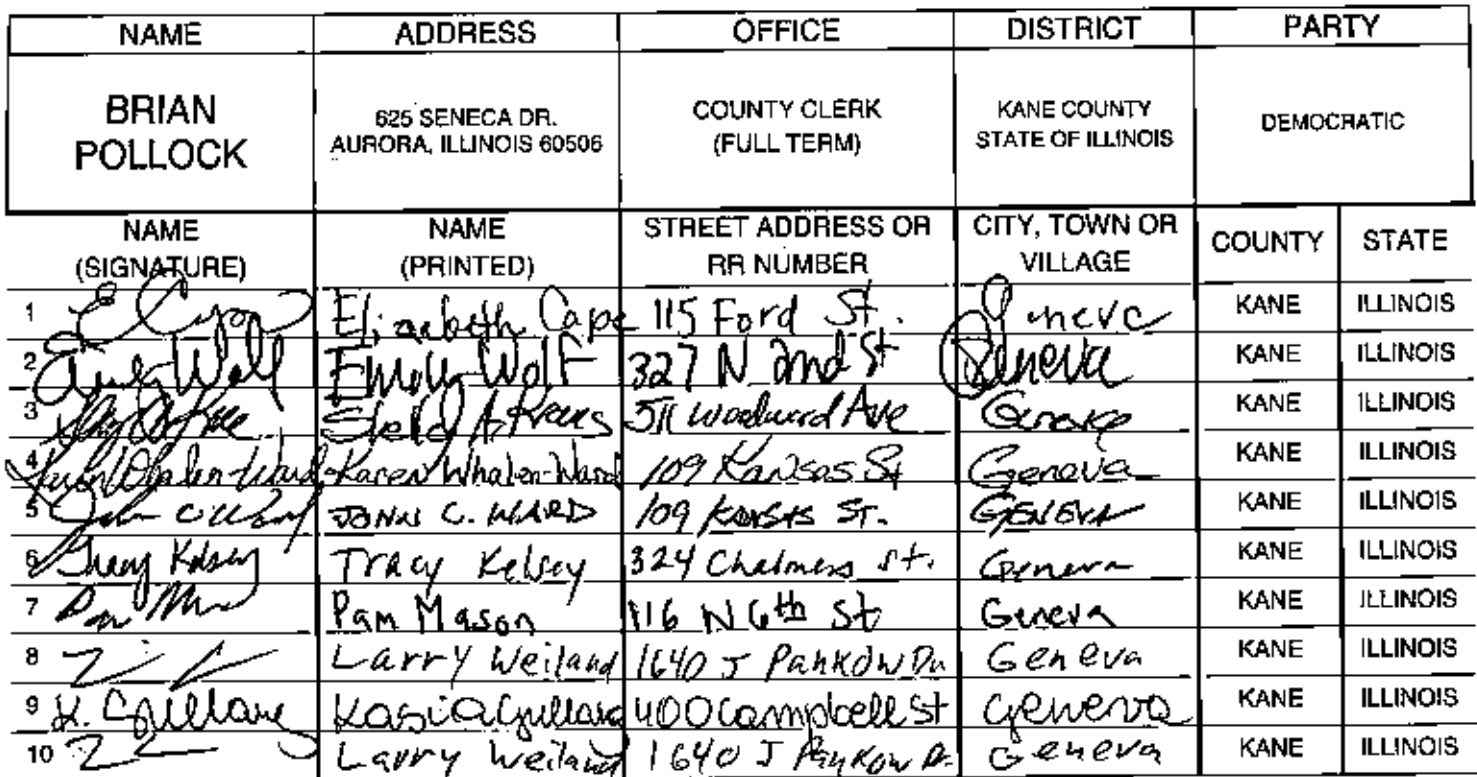 NAME ADDRESS OFFICE DISTRICT PARTY
BRIAN POLLOCK 625 SENECA DR. AURORA, ILLINOIS 60506 COUNTY CLERK (FULL TERM) KANE COUNTY STATE OF ILLINOIS DEMOCRATIC
NAME (SIGNATURE) NAME (PRINTED) STREET ADDRESS OR RR NUMBER CITY, TOWN OR VILLAGE COUNTY STATE
1 Elizabeth Cape 115 Ford St. Geneva KANE ILLINOIS
2 Emily Wolf 327 N 2nd St Geneva KANE ILLINOIS
3 511 Woodward Ave Geneva KANE ILLINOIS
4 Karen Whalen-Ward Karen Whalen-Ward 109 Kansas St Geneva KANE ILLINOIS
5 John C Ward JOHN C. WARD 109 Kansas ST. GENEVA KANE ILLINOIS
6 Tracy Kelsey Tracy Kelsey 324 Chalmers St. Geneva KANE ILLINOIS
7 Pam Mason 116 N 6th St Geneva KANE ILLINOIS
8 Larry Weiland 1640 J Pankow Dr Geneva KANE ILLINOIS
9 K. Gullang Kasia 400 Campbell St Geneva KANE ILLINOIS
10 Larry Weiland 1640 J Pankow Dr Geneva KANE ILLINOIS